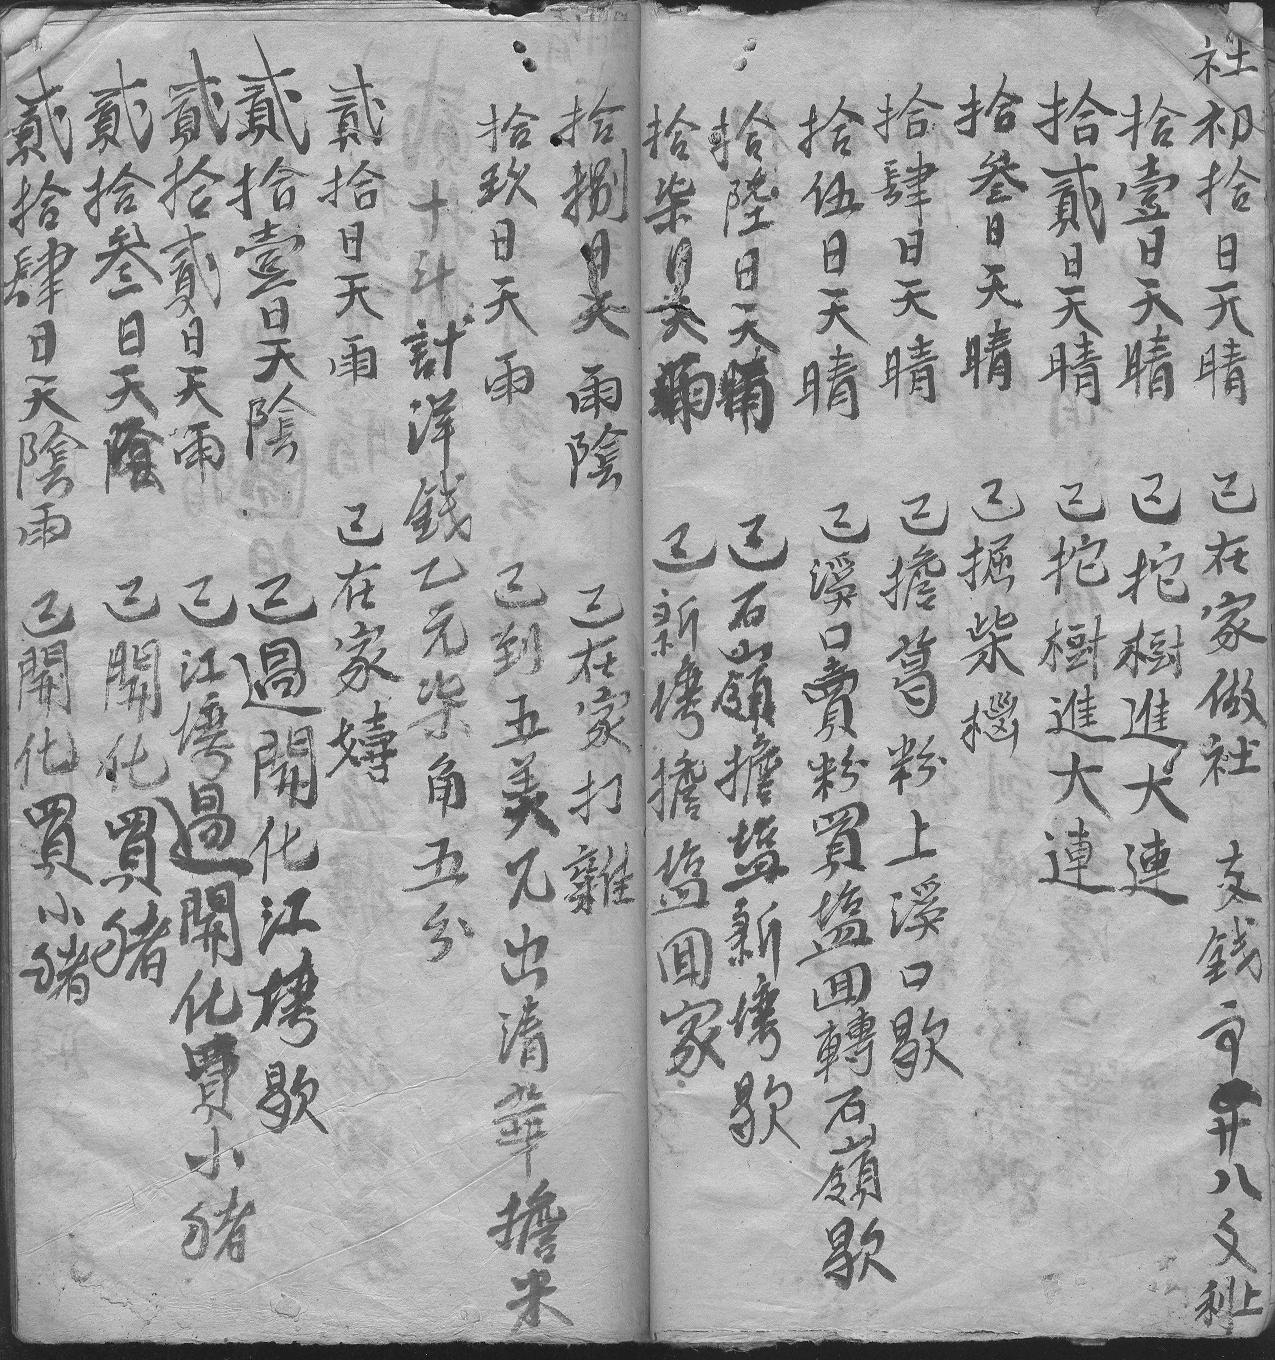 社初拾日天晴 己在家做社 支錢 廿八文
拾壹日天晴 己挖樹進大連
拾貳日天晴 己挖樹進大連
拾叁日天晴 己掘柴樹
拾肆日天晴 己擔葛粉上溪口歇
拾伍日天晴 己溪口賣粉買塩囬轉石嶺歇
拾陸日天晴 己石嶺擔塩新塆歇
拾柒日天雨 己新塆擔塩囬家
拾捌日天雨陰 己在家打雜
拾玖日天雨 己到五美兄出清華擔米
十斗 計洋錢乙元柒角五分
貳拾日天雨 己在家嬉
貳拾壹日天陰 己過開化江塆歇
貳拾貳日天雨 己江塆過開化買小豬
貳拾叁日天陰 己開化買豬
貳拾肆日天陰雨 己開化買小豬